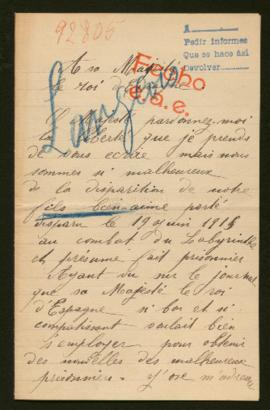 92805
A
Pedir informes
Que se hace así
Devolver
Fecho
e.a.e.
A sa Majesté
le roi d'Espagne
Langlois
Majesté pardonnez-moi
la liberté que je prends
de vous écrire mais nous
sommes si malheureux
de la disparition de notre
fils bien-aimé porté
disparu le 19 juin 1915
au combat du Labyrinthe
et présumé fait prisonnier
Ayant vu sur le journal
que sa Majesté le roi
d'Espagne si bon et si
compatissant voulait bien
s'employer pour obtenir
des nouvelles des malheureux
prisonniers. J'ose m'adresser